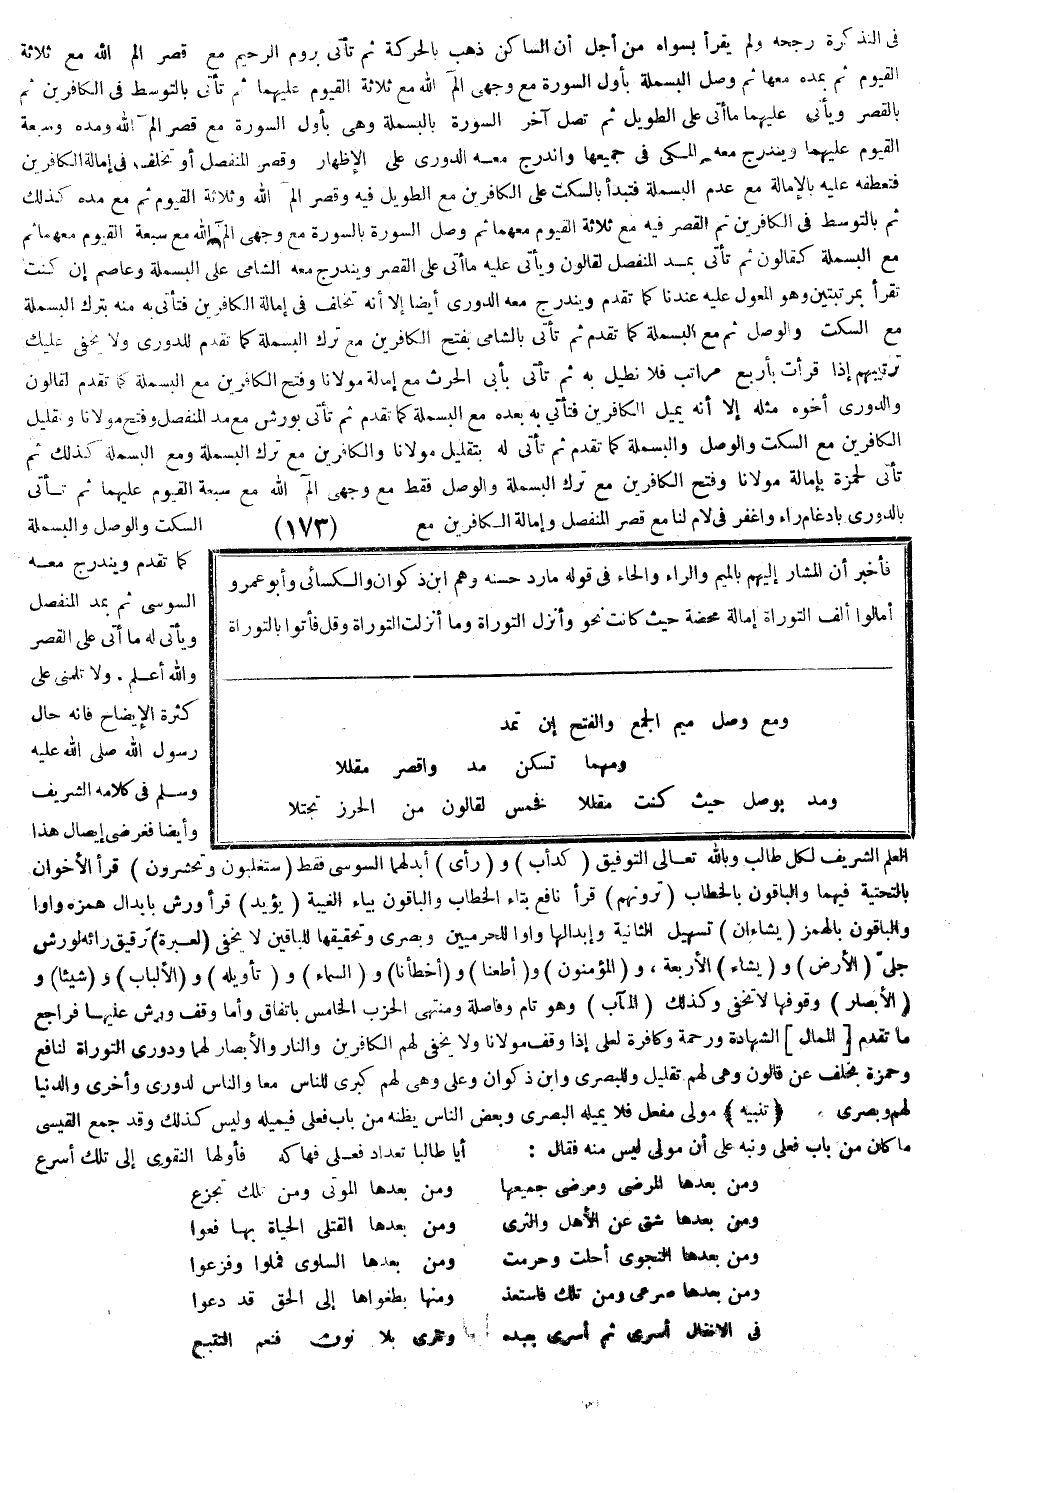 فى التذكرة رجحه ولم يقرأ بسواه من أجل أن الساكن ذهب بالحركة ثم تأتى بروم الرحيم مع قصر الم الله مع ثلاثة
القيوم ثم بمده معها ثم وصل البسملة بأول السورة مع وجهى الم الله مع ثلاثة القيوم عليهما ثم تأتى بالتوسط فى الكافرين ثم
بالقصر ويأتى عليهما ماأتى على الطويل ثم تصل آخر السورة بالبسملة وهى بأول السورة مع قصر الم الله ومده وسبعة
القيوم عليهما ويندرج معه المكى فى جميعها واندرج معه الدورى على الإظهار وقصر المنفصل أو تخلف فى إمالة الكافرين
فتعطفه عليه بالإمالة مع عدم البسملة فتبدأ بالسكت على الكافرين مع الطويل فيه وقصر الم الله وثلاثة القيوم ثم مع مده كذلك
ثم بالتوسط فى الكافرين ثم القصر فيه مع ثلاثة القيوم معهما ثم وصل السورة بالسورة مع وجهى الم الله مع سبعة القيوم معهما ثم
مع البسملة كقالون ثم تأتى بمد المنفصل لقالون ويأتى عليه ماأتى على القصر ويندرج معه الشامى على البسملة وعاصم إن كنت
تقرأ بمرتبتين وهو المعول عليه عندنا كما تقدم ويندرج معه الدورى أيضا إلا أنه تخلف فى إمالة الكافرين فتأتى به منه بترك البسملة
مع السكت والوصل ثم مع البسملة كما تقدم ثم تأتى بالشامى بفتح الكافرين مع ترك البسملة كما تقدم للدورى ولا يخفى عليك
ترتيبهم إذا قرأت بأربع مراتب فلا نطيل به ثم تأتى بأبى الحرث مع إمالة مولانا وفتح الكافرين مع البسملة كما تقدم لقالون
والدورى أخوه مثله إلا أنه يميل الكافرين فتأتي به بعده مع البسملة كما تقدم ثم تأتى بورش مع مد المنفصل وفتح مولانا وتقليل
الكافرين مع السكت والوصل والبسملة كما تقدم ثم تأتى له بتقليل مولانا والكافرين مع ترك البسملة ومع البسملة كذلك ثم
تأتى لحمزة بإمالة مولانا وفتح الكافرين مع ترك البسملة والوصل فقط مع وجهى الم الله مع سبعة القيوم عليهما ثم تأتى
بالدورى بادغام راء واغفر فى لام لنا مع قصر المنفصل وإمالة الكافرين مع (١٧٣) السكت والوصل والبسملة
كما تقدم ويندرج معه
السوسى ثم بمد المنفصل
ويأتى له ما أتى على القصر
والله أعلم . ولا تلمنى على
كثرة الإيضاح فانه حال
رسول الله صلى الله عليه
وسلم فى كلامه الشريف
وأيضا فغرضى إيصال هذا
فأخبر أن المشار إليهم بالميم والراء والحاء فى قوله مارد حسنه وهم ابن ذكوان والكسائى وأبو عمرو
أمالوا ألف التوراة إمالة محضة حيث كانت نحو وأنزل التوراة وما أنزلت التوراة وقل فأتوا بالتوراة
ومع وصل ميم الجمع والفتح إن تمد
ومهما تسكن مد واقصر مقللا
ومد بوصل حيث كنت مقللا فخمس لقالون من الحرز تجتلا
العلم الشريف لكل طالب وبالله تعالى التوفيق (كدأب) و (رأى) أبدلهما السوسى فقط (ستغلبون وتحشرون) قرأ الأخوان
بالتحتية فيهما والباقون بالخطاب (ترونهم) قرأ نافع بتاء الخطاب والباقون بياء الغيبة (يؤيد) قرأ ورش بابدال همزه واوا
والباقون بالهمز (يشاءان) تسهيل الثانية وإبدالها واوا للحرميين وبصرى وتحقيقها للباقين لا يخفى (لعبرة) ترقيق رائه لورش
جلى (الأرض) و (يشاء) الأربعة ، و (المؤمنون) و (أطعنا) و (أخطأنا) و (السماء) و (تأويله) و (الألباب) و (شيئا) و
(الأبصار) وقوفها لا تخفى وكذلك (المآب) وهو تام وفاصلة ومنتهى الحزب الخامس باتفاق وأما وقف ورش عليها فراجع
ما تقدم [الممال] الشهادة ورحمة وكافرة لعلى إذا وقف مولانا ولا يخفى لهم الكافرين والنار والأبصار لهما ودورى التوراة لنافع
وحمزة بخلف عن قالون وهى لهم تقليل وللبصرى وابن ذكوان وعلى وهى لهم كبرى للناس معا والناس لدورى وأخرى والدنيا
لهم وبصرى . (تنبيه) مولى مفعل فلا يميله البصرى وبعض الناس يظنه من باب فعلى فيميله وليس كذلك وقد جمع القيسى
ما كان من باب فعلى ونبه على أن مولى ليس منه فقال : أيا طالبا تعداد فعلى فهاكه فأولها التقوى إلى تلك أسرع
ومن بعدها المرضى ومرضى جميعها ومن بعدها الموتى ومن تلك تجزع
ومن بعدها شتى عن الأهل والثرى ومن بعدها القتلى الحياة بها فعوا
ومن بعدها النجوى أحلت وحرمت ومن بعدها السلوى فملوا وفزعوا
ومن بعدها صرعى ومن تلك فاستعذ ومنها بطغواها إلى الحق قد دعوا
فى الانفال أسرى ثم أسرى بعبده وتترى بلا نون فنعم التتبع